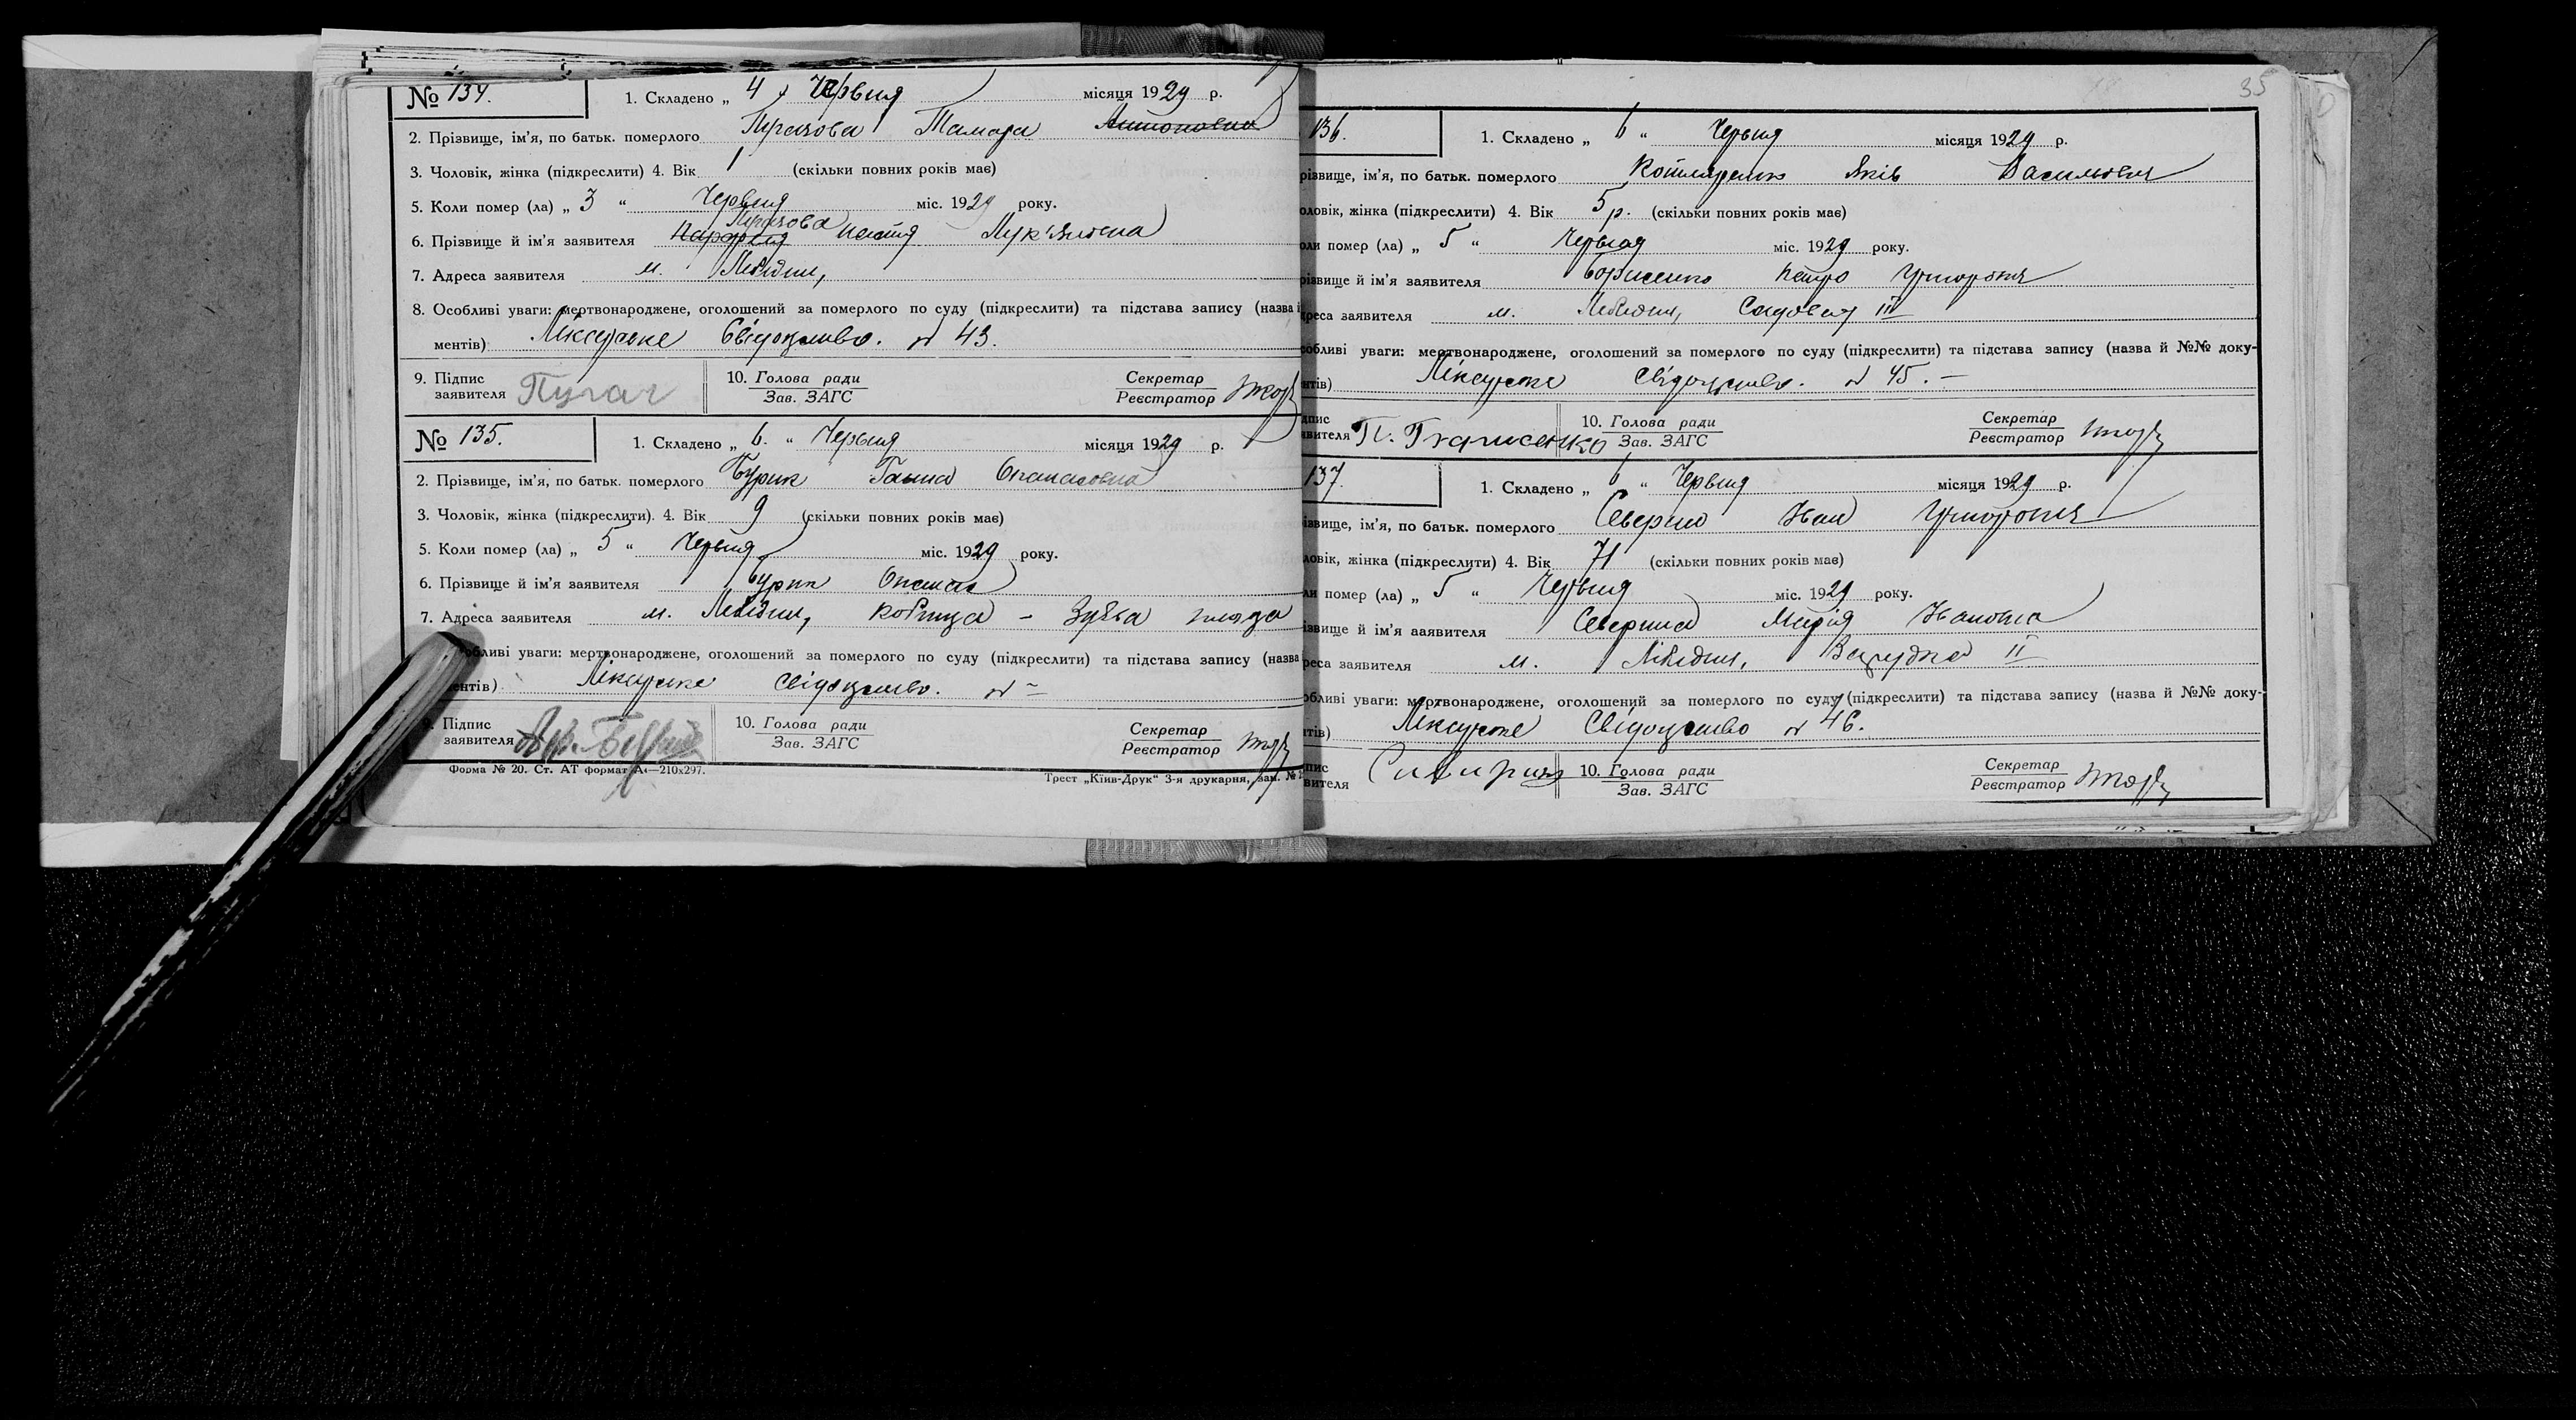 № 134. 1. Складено „ 4 „ Червня місяця 1929 р.
2. Прізвище, ім'я, по батьк. померлого Пугачова Тамара Антоновна
3. Чоловік, жінка (підкреслити) 4. Вік 1 (скільки повних років має)
5. Коли помер (ла) „ 3 “ Червня міс. 1929 року.
Пугачова
6. Прізвище й ім'я заявителя Настя Лук'янівна
7. Адреса заявителя м. Лебедин,
8. Особливі уваги: мертвонароджене, оголошений за померлого по суду (підкреслити) та підстава запису (назва
ментів) Лікарське Свідоцтво. № 43.
9. Підпис заявителя Пугач 10. Голова ради Зав. ЗАГС Секретар Реєстратор
№ 135. 1. Складено „ 6. “ Червня місяця 1929 р.
2. Прізвище, ім'я, по батьк. померлого Бурик Ганна Опанасовна
3. Чоловік, жінка (підкреслити). 4. Вік 9 (скільки повних років має)
5. Коли помер (ла) „ 5 “ Червня міс. 1929 року.
6. Прізвище й ім'я заявителя Бурик Опанас
7. Адреса заявителя м. Лебедин,
обливі уваги: мертвонароджене, оголошений за померлого по суду (підкреслити) та підстава запису (назва
ентів) Лікарське Свідоцтво. №
9. Підпис заявителя 10. Голова ради Зав. ЗАГС Секретар Реєстратор
Форма № 20. Ст. АТ формат А4—210х297. Трест „Київ-Друк“ 3-я друкарня, зам. №
35
136. 1. Складено „ 6 “ Червня місяця 1929 р.
різвище, ім'я, по батьк. померлого Котляренко Яків Васильович
оловік, жінка (підкреслити) 4. Вік 5 р. (скільки повних років має)
оли помер (ла) „ 5 “ Червня міс. 1929 року.
різвище й ім'я заявителя Борисенко Петро Григорович
реса заявителя м. Лебедин, Садовая III
собливі уваги: мертвонароджене, оголошений за померлого по суду (підкреслити) та підстава запису (назва й №№ доку-
нтів) Лікарське Свідоцтво. № 45. —
дпис явителя П. Борисенко 10. Голова ради Зав. ЗАГС Секретар Реєстратор
137. 1. Складено „ 6 “ Червня місяця 1929 р.
ізвище, ім'я, по батьк. померлого Северин Іван Григорович
ловік, жінка (підкреслити) 4. Вік 71 (скільки повних років має)
ли помер (ла) „ 5 “ Червня міс. 1929 року.
ізвище й ім'я заявителя Северина Марія Івановна
реса заявителя м. Лебедин, II
обливі уваги: мертвонароджене, оголошений за померлого по суду (підкреслити) та підстава запису (назва й №№ доку-
тів) Лікарське Свідоцтво № 46.
пис вителя Сивирин 10. Голова ради Зав. ЗАГС Секретар Реєстратор